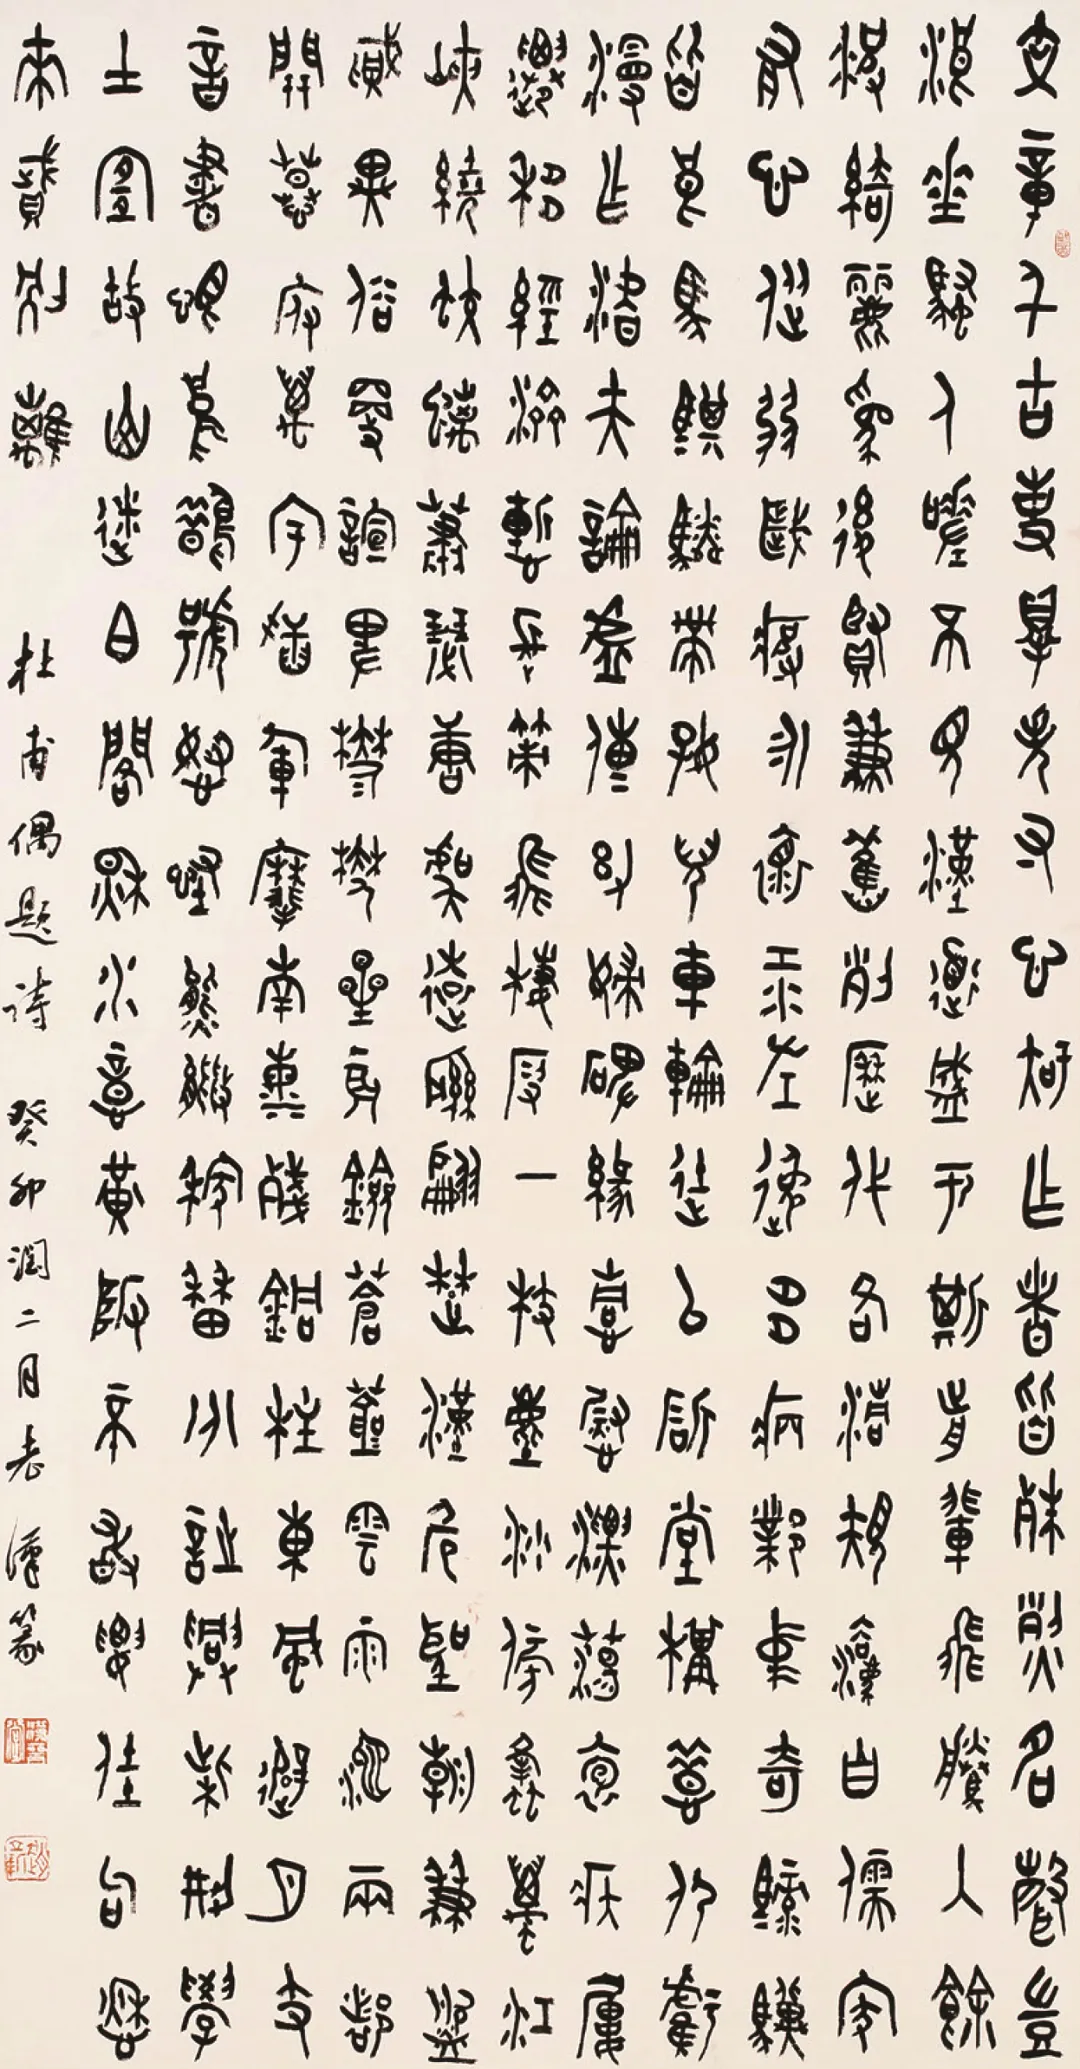 文章千古事得失寸心知作者皆殊列名聲豈
浪垂騷人嗟不見漢道盛于斯前輩飛騰入餘
波綺麗為後賢兼舊列歷代各清規法自儒家
有心從弱歲疲永懷江左逸多病鄴中奇騄驥
皆良馬騏驎帶好兒車輪徒已斫堂構惜仍虧
漫作潛夫論虛傳幼婦碑緣情慰漂蕩抱疾屢
遷移經濟慚長策飛棲假一枝塵沙傍蜂蠆江
峽繞蛟螭蕭瑟唐虞遠聯翩楚漢危聖朝兼盜
賊異俗更喧卑鬱鬱星辰劍蒼蒼雲雨池兩都
開幕府萬宇插軍麾南海殘銅柱東風避月支
音書恨烏鵲號怒怪熊羆稼穡分詩興柴荊學
土宜故山迷白閣秋水隱黃陂不敢要佳句愁
來賦別離
杜甫偶題詩 癸卯潤二月老 篆